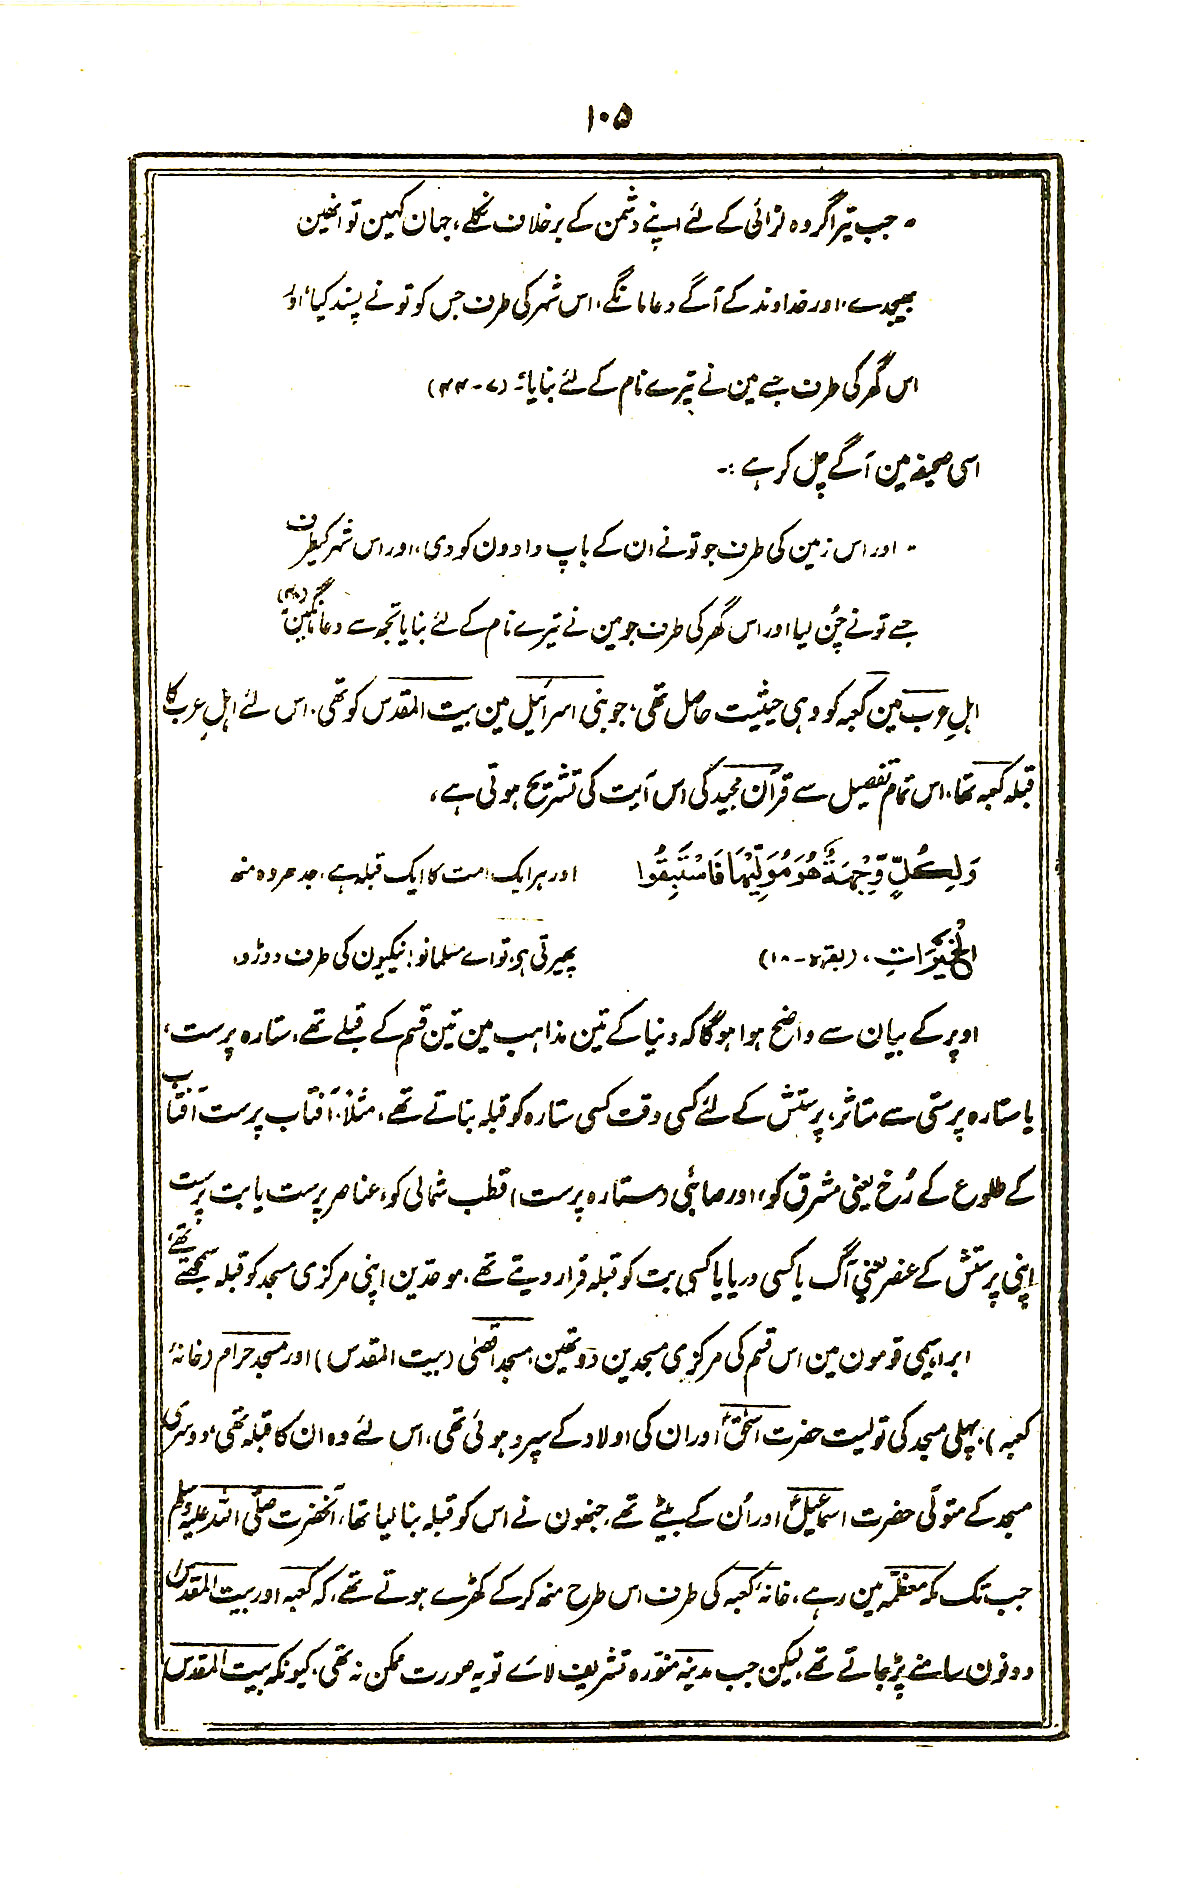 ۱۰۵
"جب تیرا گروہ لڑائی کے لئے اپنے دشمن کے برخلاف نکلے، جہان کہین تو انھین
بھیجدے، اور خداوند کے آگے دعا مانگے، اس شہر کی طرف جس کو تو نے پسند کیا، اور
اس گھر کی طرف جسے مین نے تیرے نام کے لئے بنایا۔" (۷-۴۴)
اسی صحیفہ مین آگے چل کر ہے :-
"اور اس زمین کی طرف جو تو نے ان کے باپ دادون کو دی، اور اس شہر کیطرف
جسے تو نے چُن لیا اور اس گھر کی طرف جو مین نے تیرے نام کے لئے بنایا تجھ سے دعا مانگین" (۴۸)
اہلِ عرب مین کعبہ کو وہی حیثیت حاصل تھی، جو بنی اسرائیل مین بیت المقدس کو تھی، اس لئے اہلِ عرب کا
قبلہ کعبہ تھا، اس تمام تفصیل سے قرآن مجید کی اس آیت کی تشریح ہوتی ہے،
وَلِكُلٍّ وِّجْهَةٌ هُوَ مُوَلِّيْهَا فَاسْتَبِقُوا اور ہر ایک امت کا ایک قبلہ ہے، جدھر وہ منھ
الْخَيْرَاتِ، (بقرہ-۱۸) پھیرتی ہو، تو اے مسلمانو! نیکیون کی طرف دوڑو،
اوپر کے بیان سے واضح ہوا ہوگا کہ دنیا کے تین مذاہب مین تین قسم کے قبلے تھے، ستارہ پرست،
یا ستارہ پرستی سے متاثر، پرستش کے لئے کسی وقت کسی ستارہ کو قبلہ بناتے تھے، مثلاً، آفتاب پرست آفتاب
کے طلوع کے رُخ یعنی مشرق کو، اور صابئی (ستارہ پرست) قطب شمالی کو، عناصر پرست یا بت پرست
اپنی پرستش کے عنصر یعنی آگ یا کسی دریا یا کسی بت کو قبلہ قرار دیتے تھے، موحدین اپنی مرکزی مسجد کو قبلہ سمجھتے تھے،
ابراہیمی قومون مین اس قسم کی مرکزی مسجدین دو تھین، مسجد اقصیٰ (بیت المقدس) اور مسجد حرام (خانہٴ
کعبہ)، پہلی مسجد کی تولیت حضرت اسحٰقؑ اور ان کی اولاد کے سپرد ہوئی تھی، اس لئے وہ ان کا قبلہ تھی، دوسری
مسجد کے متولّی حضرت اسماعیلؑ اور اُن کے بیٹے تھے، جنھون نے اس کو قبلہ بنا لیا تھا، آنحضرت صلّی اللہ علیہ وسلم
جب تک مکہ معظمہ مین رہے، خانہٴ کعبہ کی طرف اس طرح منھ کرکے کھڑے ہوتے تھے، کہ کعبہ اور بیت المقدس
دونون سامنے پڑجاتے تھے، لیکن جب مدینہ منوّرہ تشریف لائے تو یہ صورت ممکن نہ تھی، کیونکہ بیت المقدس